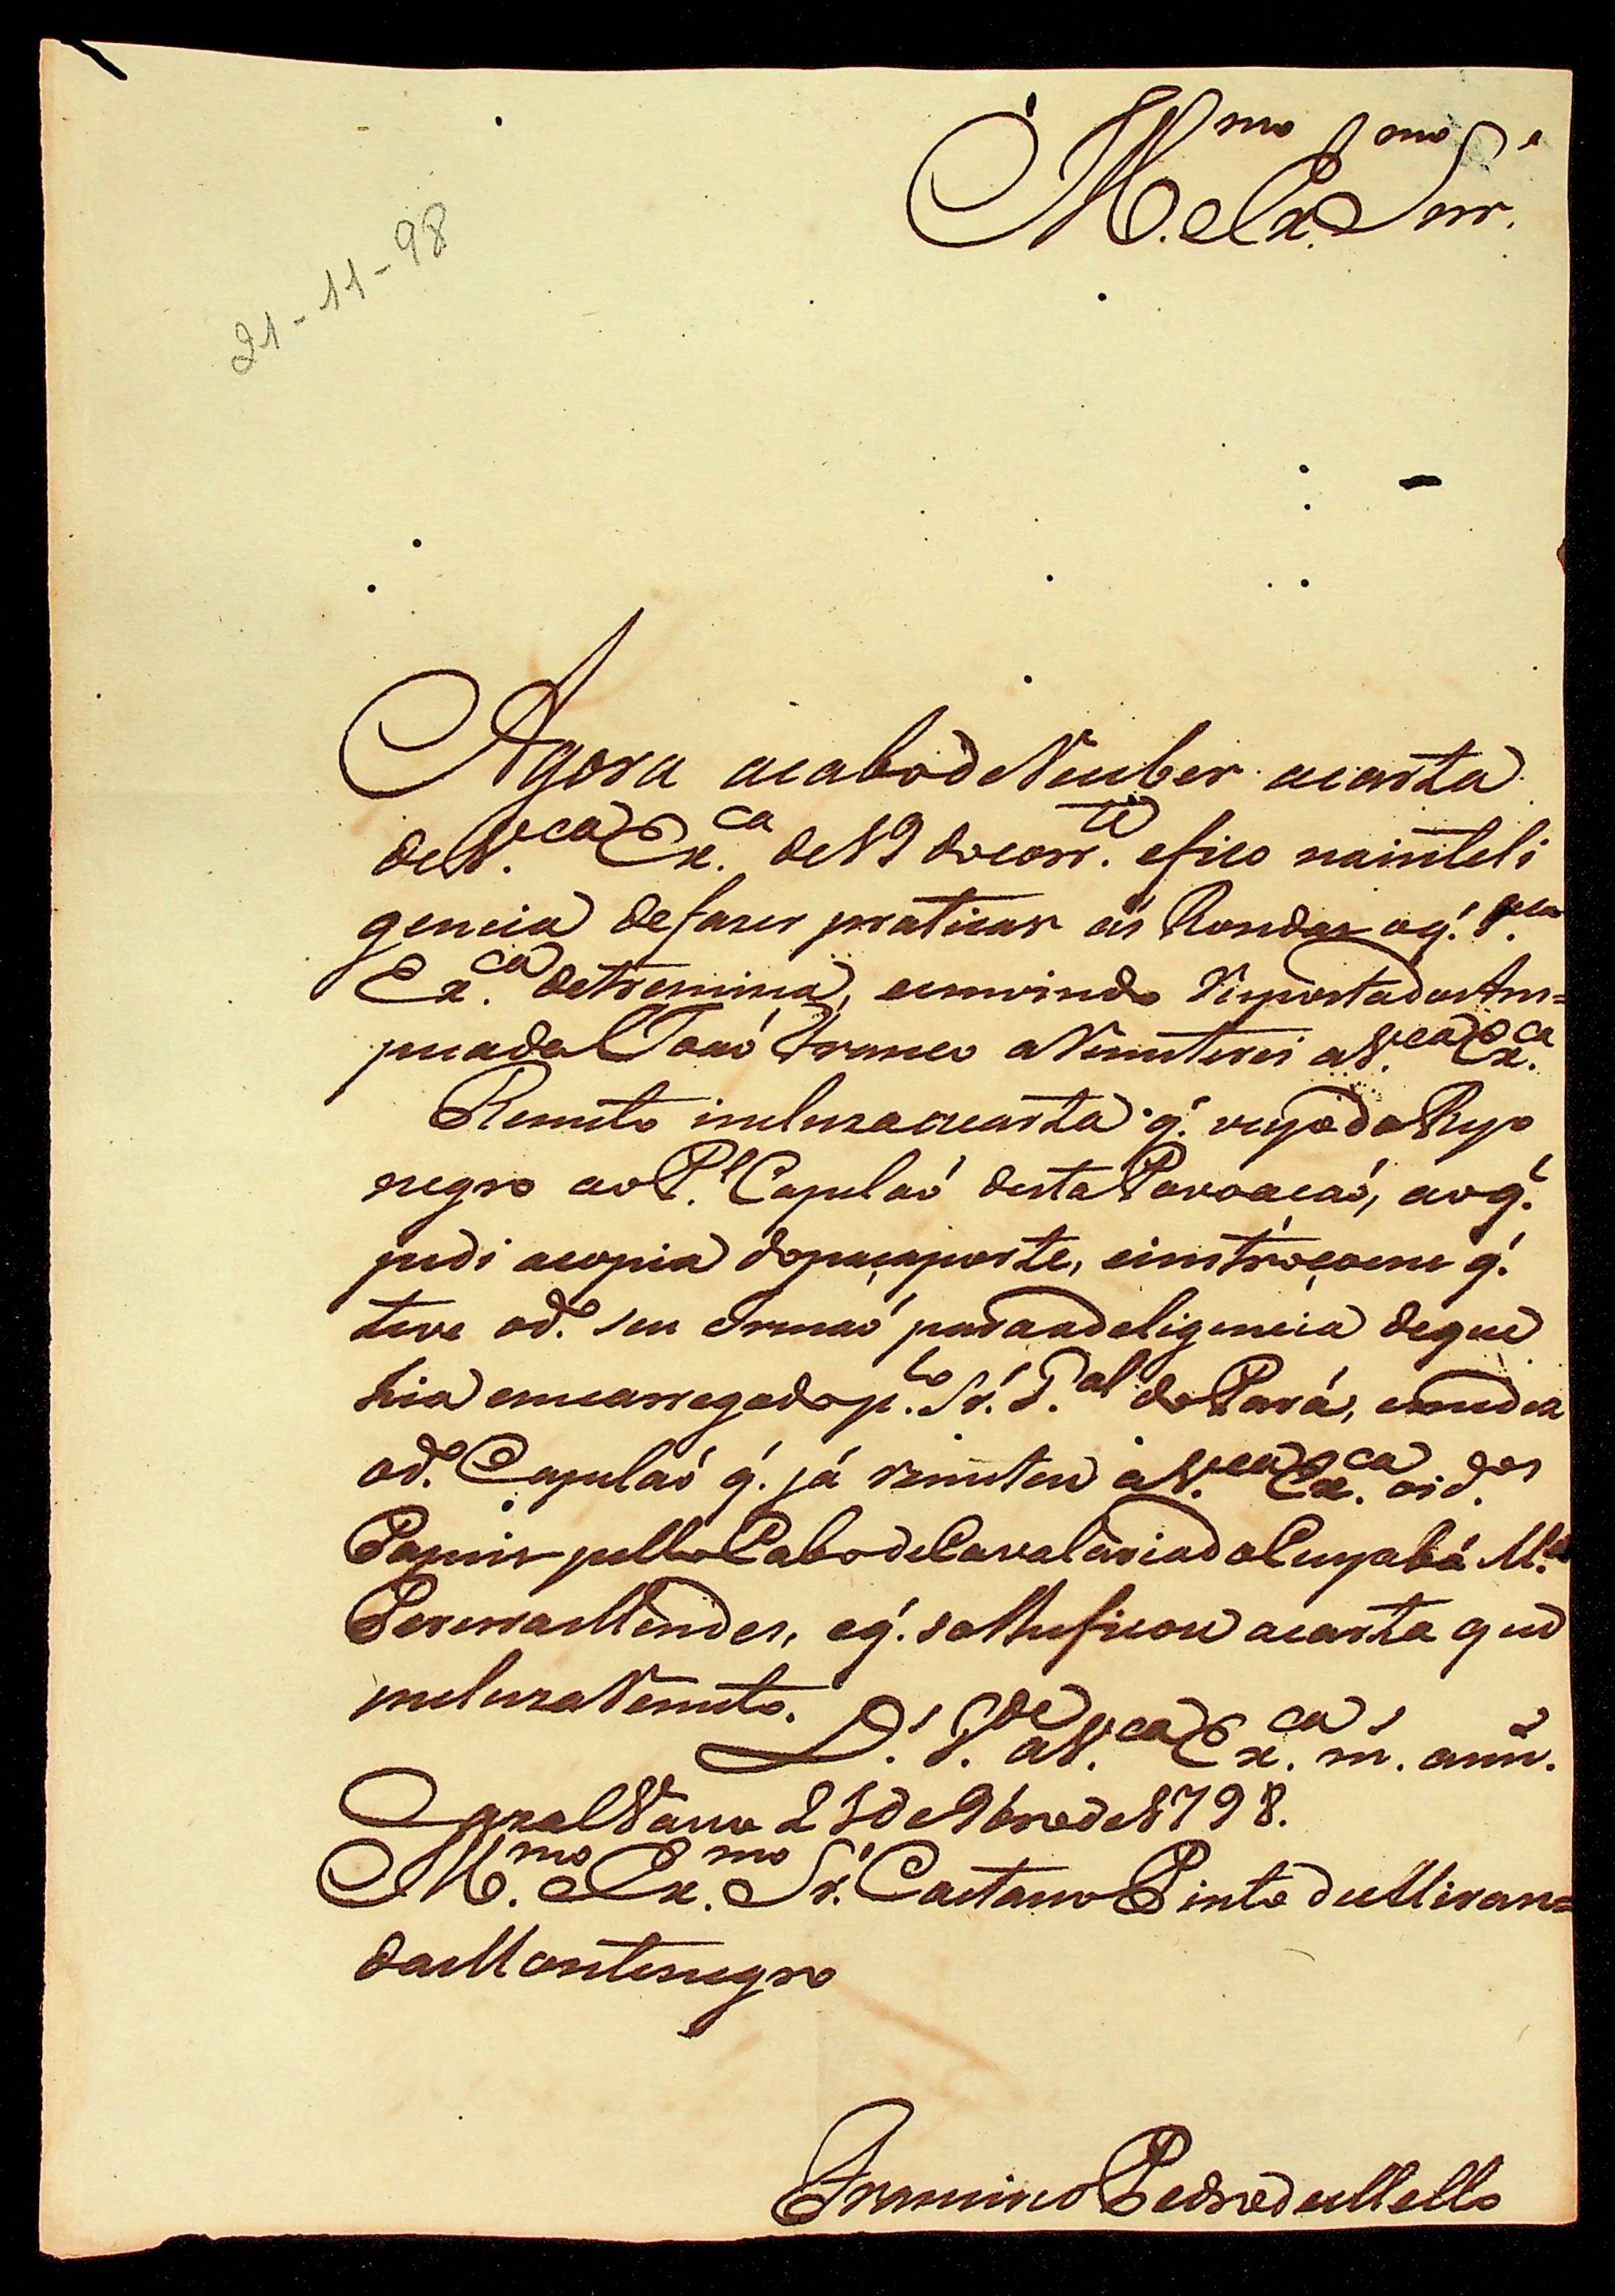 Ill.mo e Ex.mo Snr.
21-11-98
Agora acabo de Receber a carta
de V.ca Ex.ca de 19 do corr.te e fico na inteli
gencia de fazer praticar as Rondas o q.' V.ca
Ex.ca detremina, e em vindo Reposta do Am=
puada Joaõ Franco a Remeterei a V.ca Ex.ca
Remeto incluza a carta q.' veyo do Ryo
negro ao P.e Capelaõ desta Povoacaõ, ao q.'
pedi a copia do paçaporte, e instroçoens q.'
teve o d.o seu Irmaõ para a deligencia de que
hia emcarregado p.lo Sr. G.al do Pará, e me diz
o d.o Capelaõ q.' já remeteu a V.ca Ex.ca os d.os
Papeis pello Cabo de Cavalaria do Cuyabá M.el
Pereira Mendes, e q.' só lhe ficou a carta que
incluza Remeto.
D.s G.de a V.ca Ex.ca m.s ann.s
Cazal Vasco 21 de 9bro de 1798.
Ill.mo e Ex.mo Sr. Caetano Pinto de Miran=
da Montenegro
Francisco Pedro de Mello